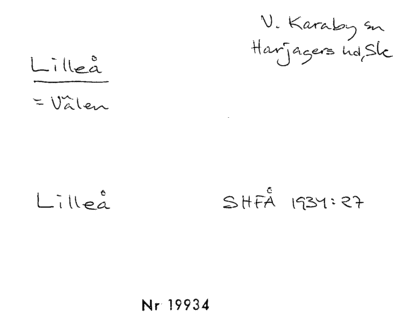 V. Karaby sn
Harjagers hd, Sk
Lilleå
= Välen
Lilleå SHFÅ 1934:27
Nr 19934